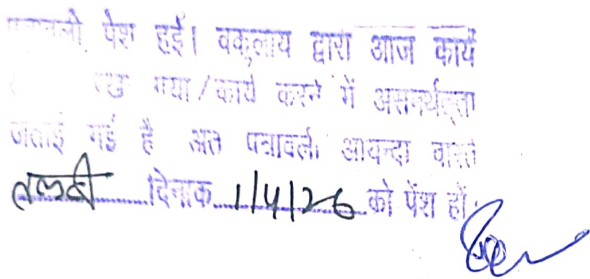 पत्रावली पेश हुई। वकुलाय द्वारा आज कार्य
रखा गया/कार्य करने में असमर्थता
जताई गई है अत पत्रावली आयन्दा वास्ते
तलबी दिनाक 1/4/26 को पेंश हों।